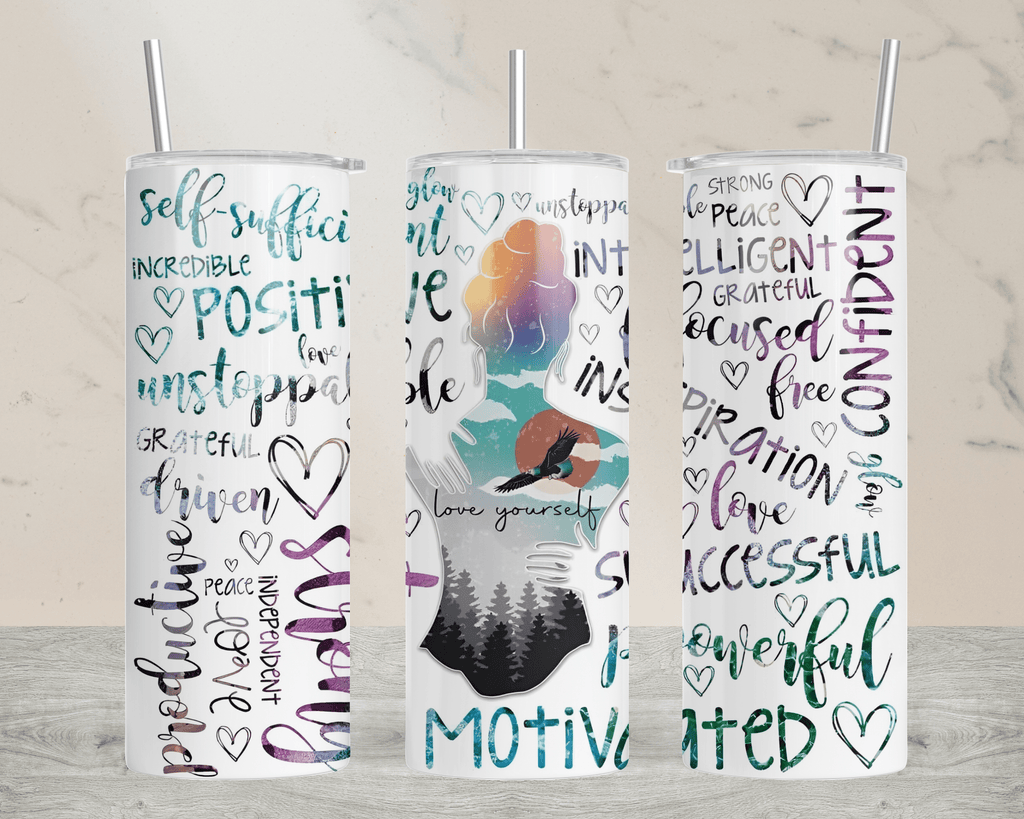 self-suffici
INCREDIBLE
POSITI
love
unstoppa
GRATEFUL
driven
productive
PEACE
love
INDEPENDENT
glow
unstoppa
nt
INT
ve
ble
INS
love yourself
MOTIVA
STRONG
PEACE
ELLIGENT
GRATEFUL
CONFIDENT
ocused
free
PIRATION
glow
love
UCCESSFUL
powerful
ATED